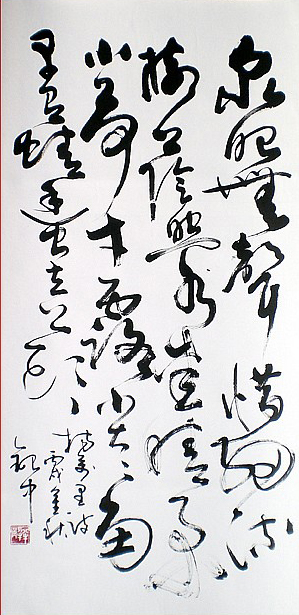 泉眼無聲惜細流
樹陰照水愛晴柔
小荷才露尖尖角
早有蜻蜓立上頭
楊萬里詩
丙戌金秋